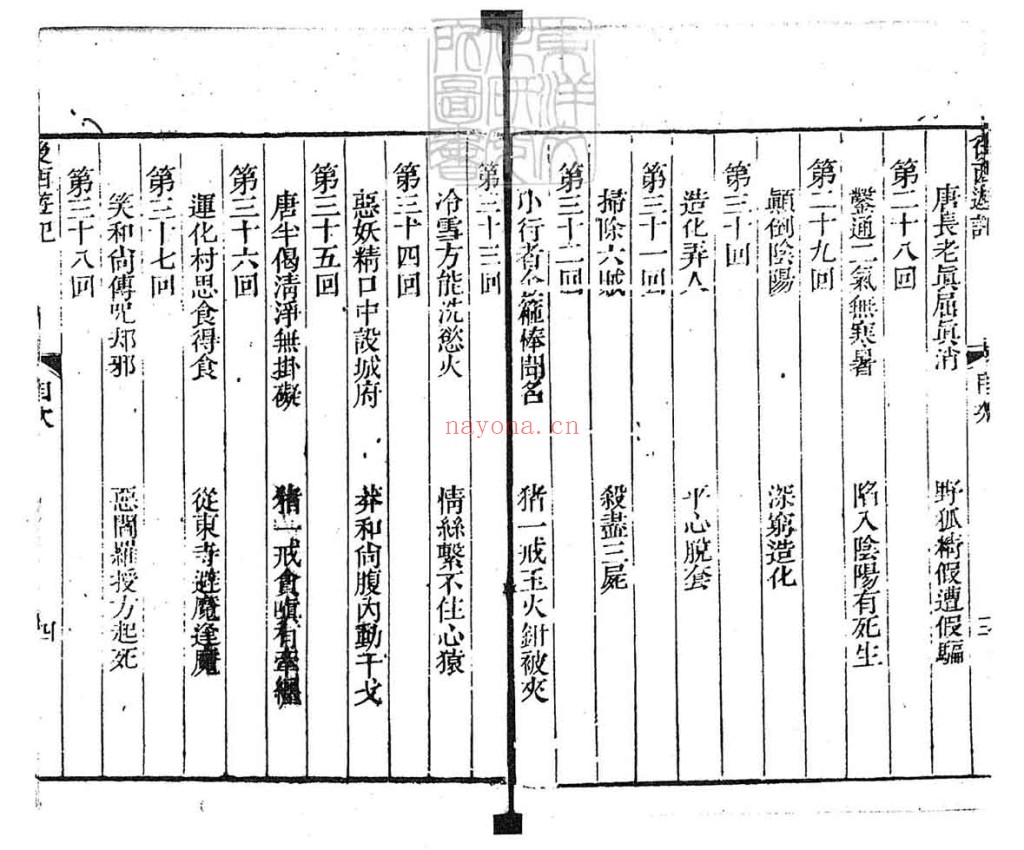 後西遊記
目次
三
唐長老眞屈眞消 野狐精假遭假騙
第二十八回
鑿通二氣無寒暑 陷入陰陽有死生
第二十九回
顚倒陰陽 深窮造化
第三十回
造化弄人 平心脫套
第三十一回
掃除六賊 殺盡三屍
第三十二回
小行者金箍棒聞名 猪一戒玉火鉗被夾
第三十三回
冷雪方能洗慾火 情絲繫不住心猿
第三十四回
惡妖精口中設城府 莽和尙腹內動干戈
第三十五回
唐半偈清淨無掛礙 猪一戒貪嗔有牽纏
第三十六回
運化村思食得食 從東寺避魔逢魔
第三十七回
笑和尙傳呪却邪 惡閻羅授方起死
第三十八回
後西遊記
目次
四
東洋文
化研究
所圖書
nayona.cn